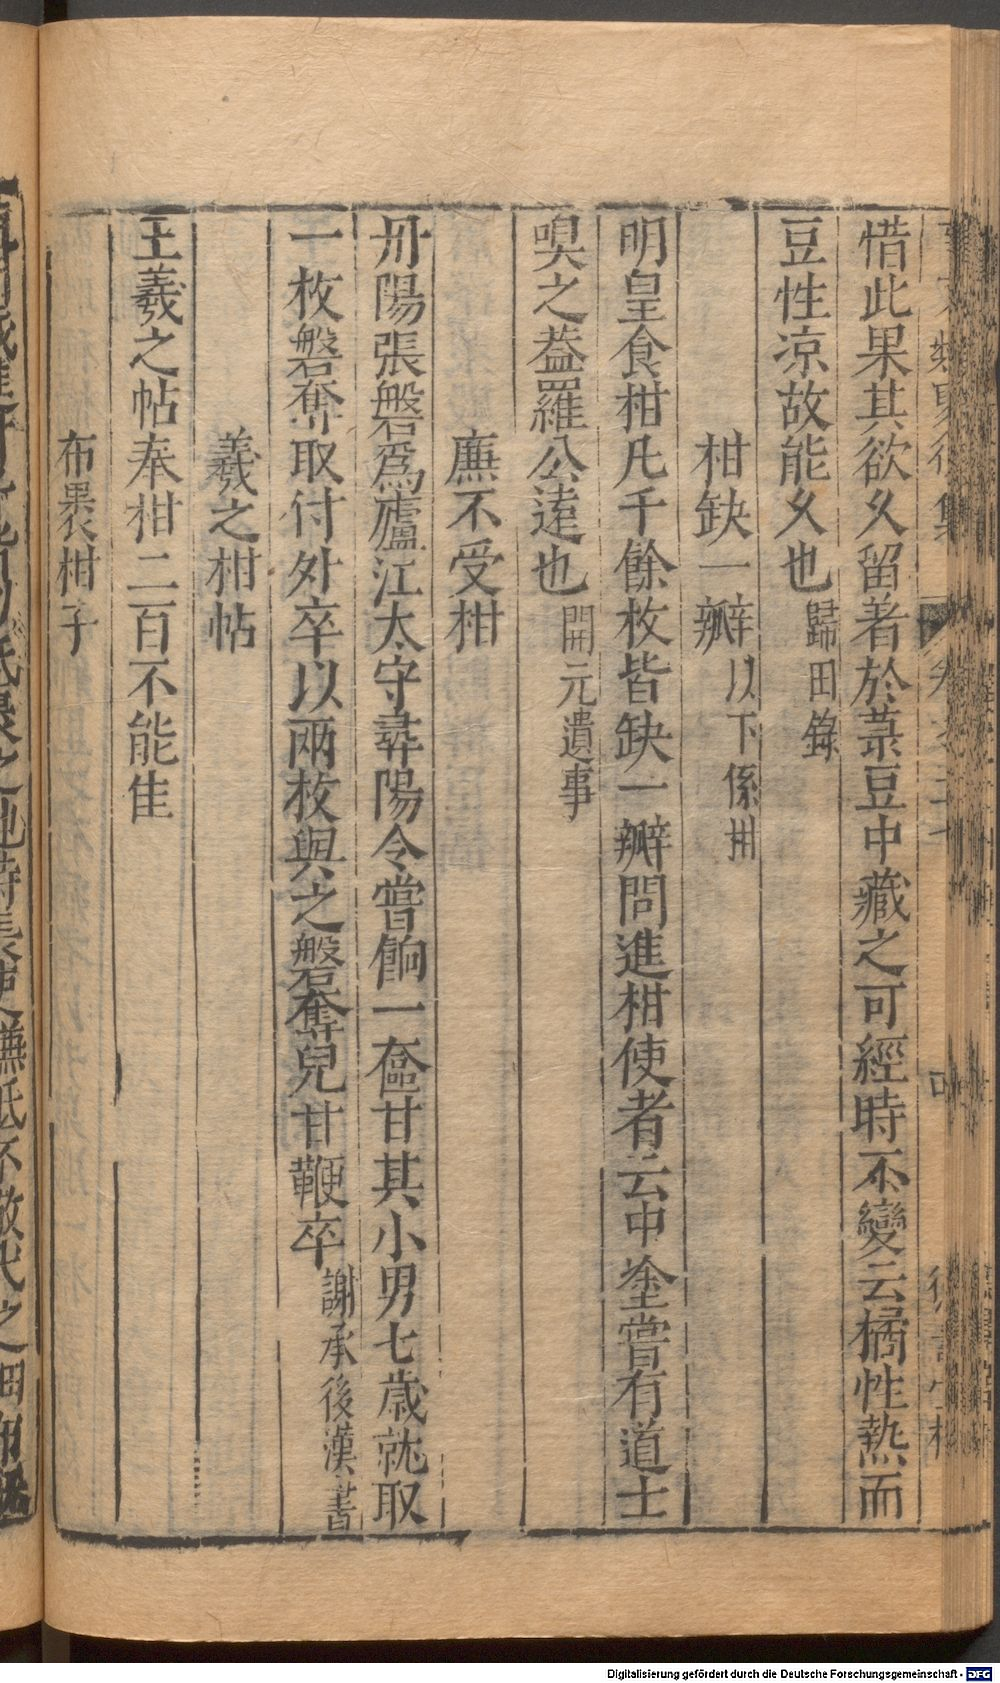 惜此果其欲久留著於菉豆中藏之可經時不變云橘性熱而
豆性凉故能久也歸田錄
柑缺一瓣以下係柑
明皇食柑凡千餘枚皆缺一瓣問進柑使者云中塗嘗有道士
嗅之葢羅公遠也開元遺事
廉不受柑
丹陽張磐爲廬江太守尋陽令嘗餉一奩甘其小男七歲就取
一枚磐奪取付外卒以兩枚與之磐奪兒甘鞭卒謝承後漢書
羲之柑帖
王羲之帖奉柑二百不能佳
布裹柑子
Digitalisierung gefördert durch die Deutsche Forschungsgemeinschaft - DFG